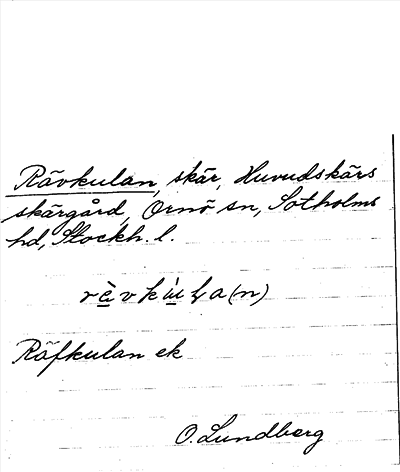 Rävkulan, skär, Huvudskärs
skärgård, Ornö sn, Sotholms
hd, Stockh. l.
rävkɯ̀ɫa(n)
Räfkulan ek
O. Lundberg